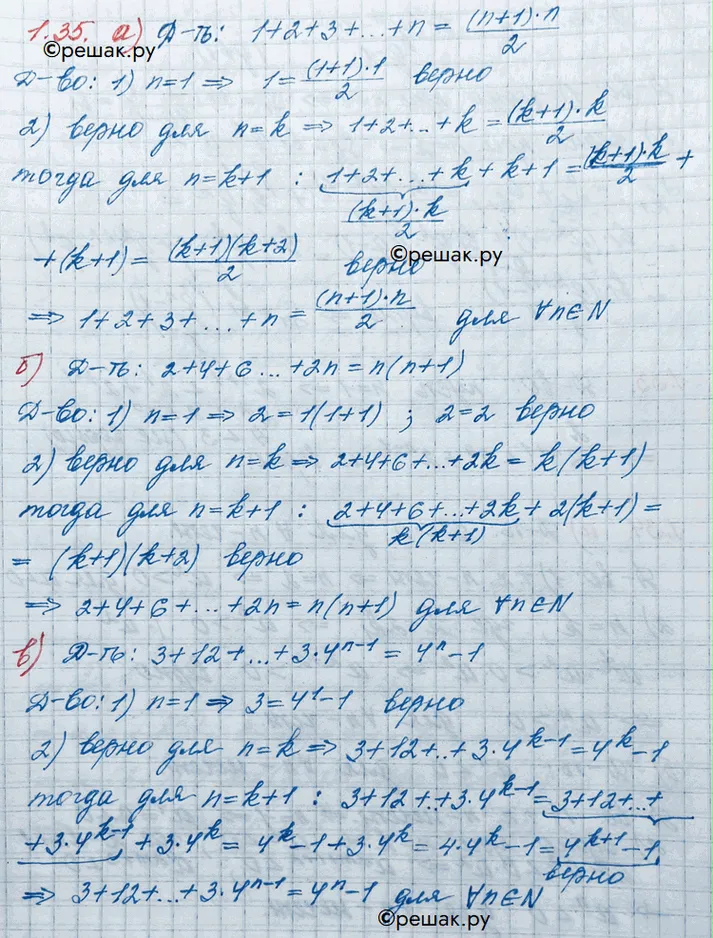 1.35. а) Д-ть: 1+2+3+...+n = (n+1)·n/2
©решак.ру
Д-во: 1) n=1 ⇒ 1 = (1+1)·1/2 верно
2) верно для n=k ⇒ 1+2+...+k = (k+1)·k/2
тогда для n=k+1 : 1+2+...+k + k+1 = (k+1)·k/2 +
(k+1)·k/2
©решак.ру
+(k+1) = (k+1)(k+2)/2 верно
⇒ 1+2+3+...+n = (n+1)·n/2 для ∀n∈N
б) Д-ть: 2+4+6...+2n = n(n+1)
Д-во: 1) n=1 ⇒ 2=1(1+1) ; 2=2 верно
2) верно для n=k ⇒ 2+4+6+...+2k = k(k+1)
тогда для n=k+1 : 2+4+6+...+2k + 2(k+1) =
k(k+1)
= (k+1)(k+2) верно
⇒ 2+4+6+...+2n = n(n+1) для ∀n∈N
в) Д-ть: 3+12+...+3·4ⁿ⁻¹ = 4ⁿ-1
Д-во: 1) n=1 ⇒ 3=4¹-1 верно
2) верно для n=k ⇒ 3+12+..+3·4ᵏ⁻¹=4ᵏ-1
тогда для n=k+1 : 3+12+..+3·4ᵏ⁻¹=3+12+..+
+3·4ᵏ⁻¹ + 3·4ᵏ = 4ᵏ-1+3·4ᵏ = 4·4ᵏ-1 = 4ᵏ⁺¹-1
верно
⇒ 3+12+...+3·4ⁿ⁻¹=4ⁿ-1 для ∀n∈N
©решак.ру